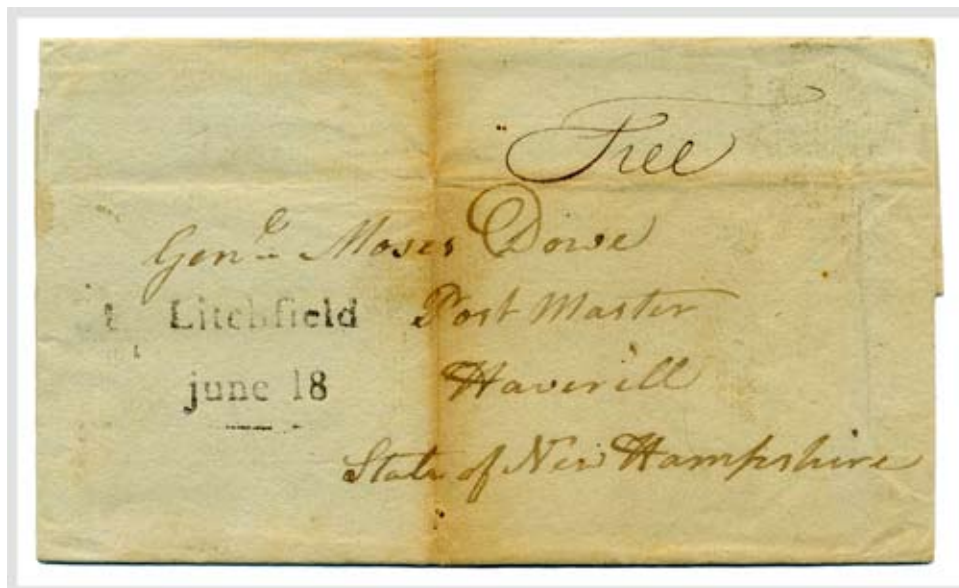 Free
Genl. Moses Dowe
Litchfield
Post Master
june 18
Haverill
State of New Hampshire